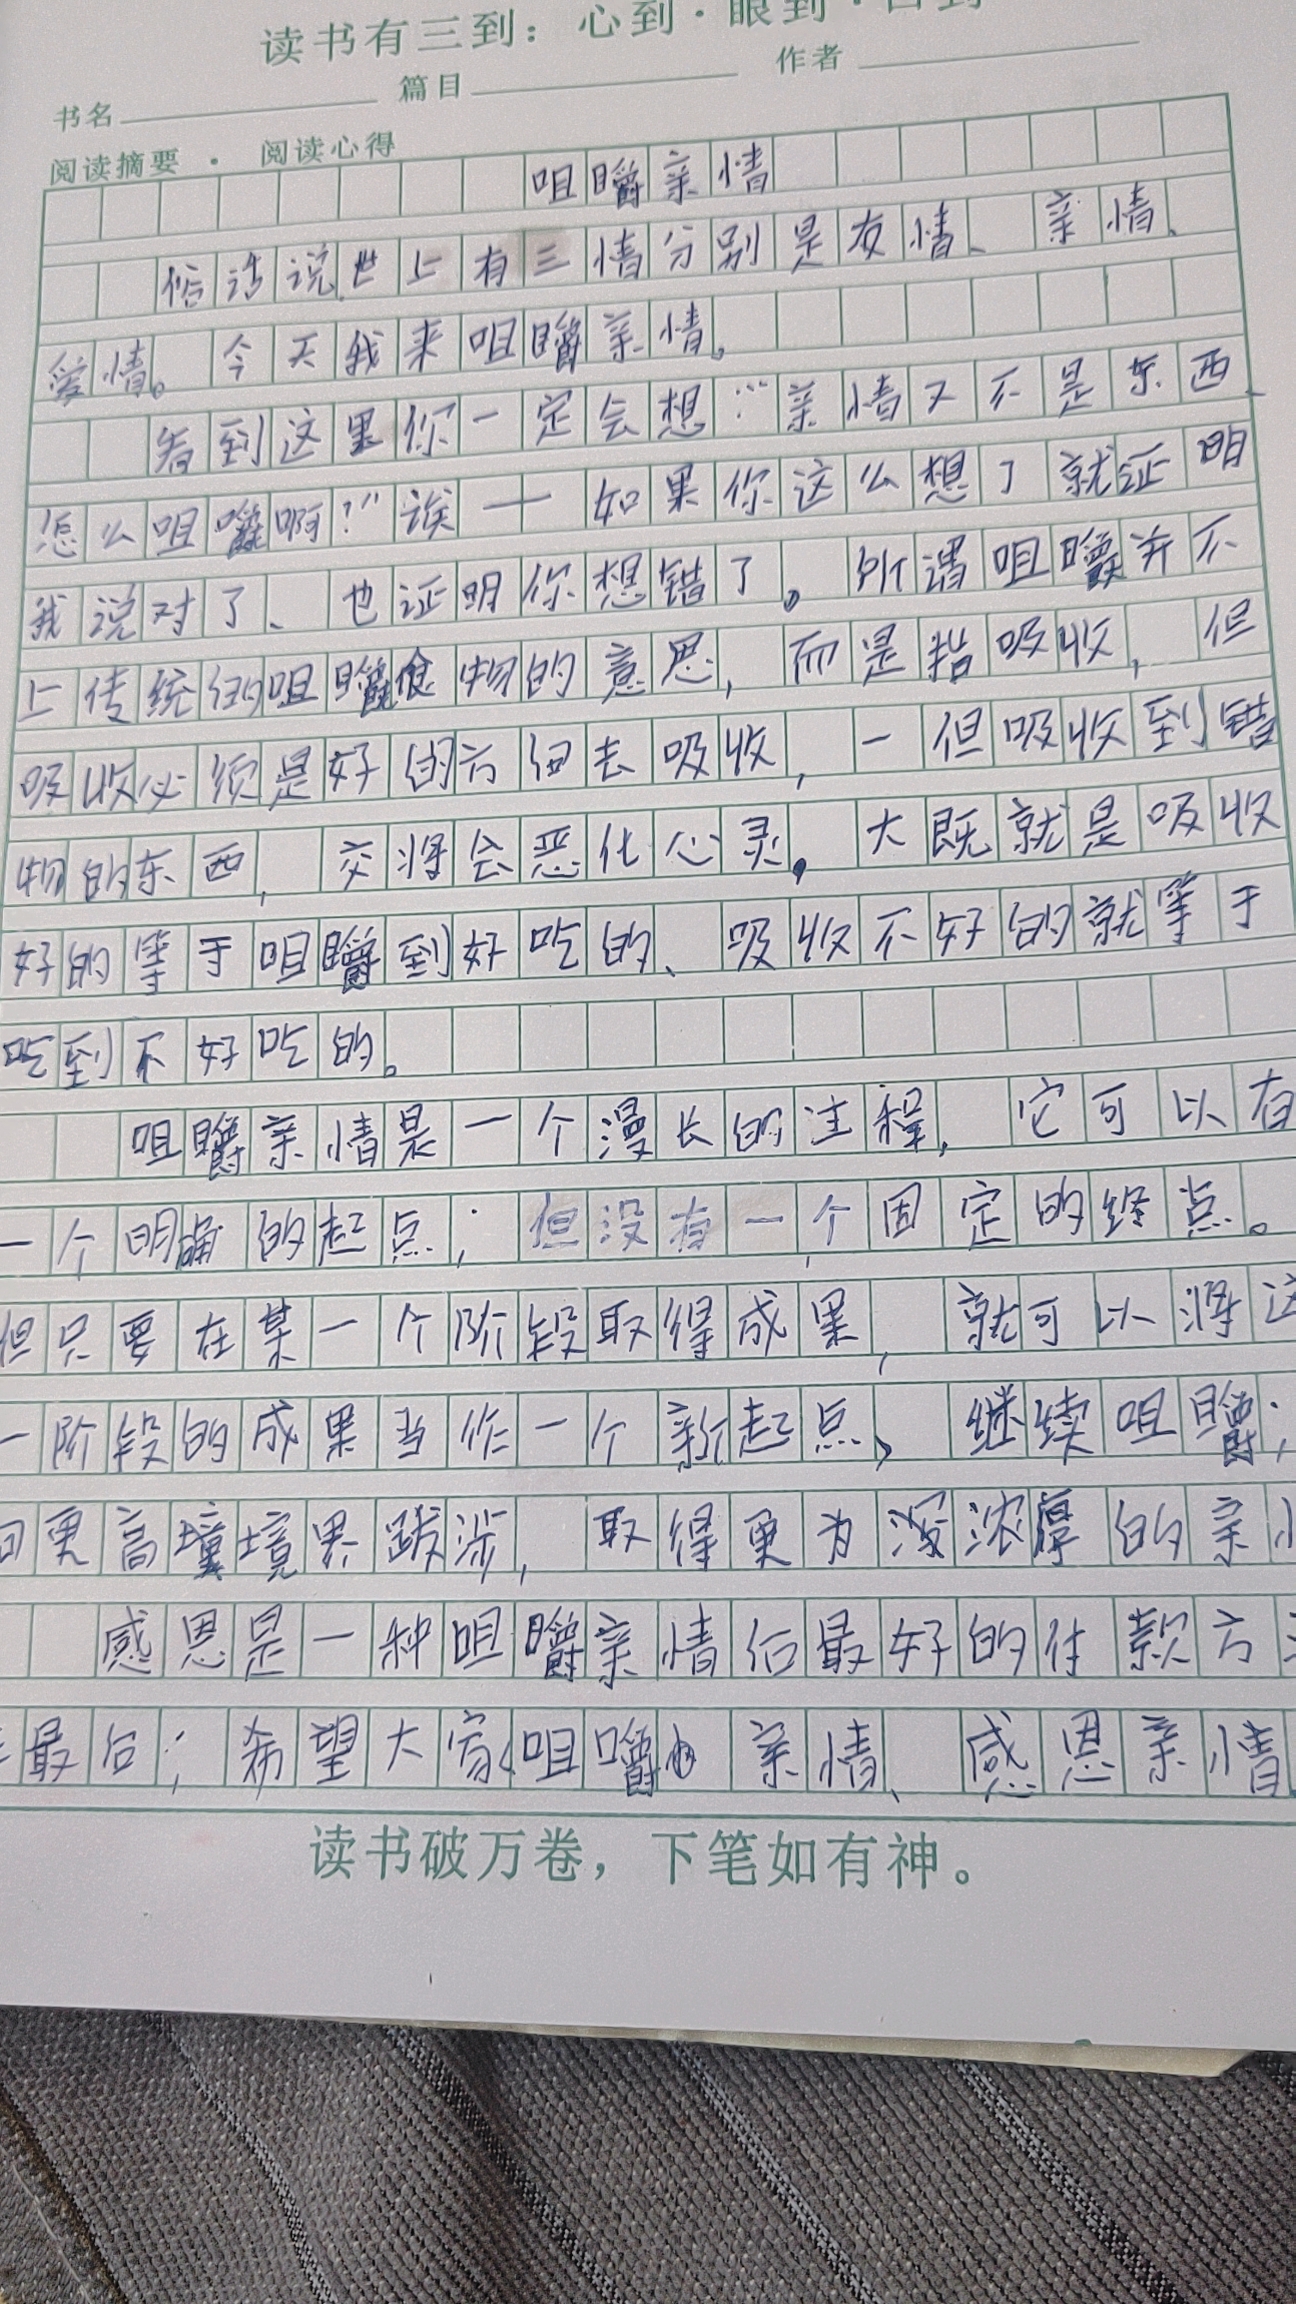 读书有三到：心到·眼到·口到
书名 篇目 作者
阅读摘要 · 阅读心得
咀嚼亲情
俗话说世上有三情分别是友情、亲情、
爱情。今天我来咀嚼亲情。
看到这里你一定会想:“亲情又不是东西、
怎么咀嚼啊?”诶——如果你这么想了就证明
我说对了、也证明你想错了。所谓咀嚼并不
上传统的咀嚼食物的意思,而是指吸收,但
吸收必须是好的方向去吸收,一但吸收到错
物的东西,将会恶化心灵。大既就是吸收
好的等于咀嚼到好吃的、吸收不好的就等于
吃到不好吃的。
咀嚼亲情是一个漫长的过程,它可以有
一个明确的起点;但没有一个固定的终点。
但只要在某一个阶段取得成果,就可以将这
一阶段的成果当作一个新起点、继续咀嚼;
向更高境界跋涉,取得更为深浓厚的亲情
感恩是一种咀嚼亲情后最好的付款方
最后;希望大家咀嚼 亲情、感恩亲情
读书破万卷，下笔如有神。